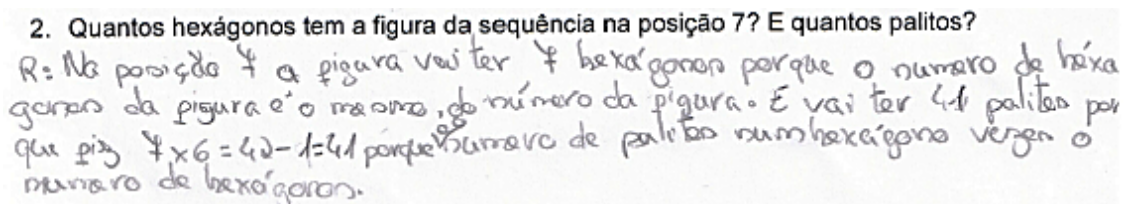 2. Quantos hexágonos tem a figura da sequência na posição 7? E quantos palitos?
R: Na posição 7 a figura vai ter 7 hexágonos porque o numero de héxa
gonos da figura e´ o mesmo, do número da figura. E vai ter 41 palitos por
que fiz 7x6=42-1=41 porque é o numero de palitos num hexágono vezes o
numero de hexágonos.